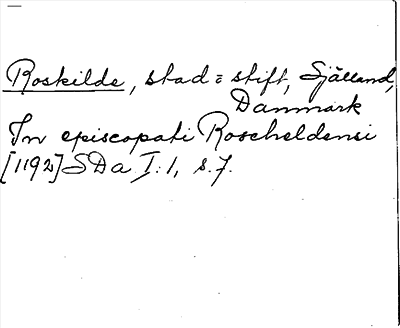 Roskilde, stad o stift, Själland,
Danmark
In episcopati Roscheldensi
[1192] SDa I:1, s.7.